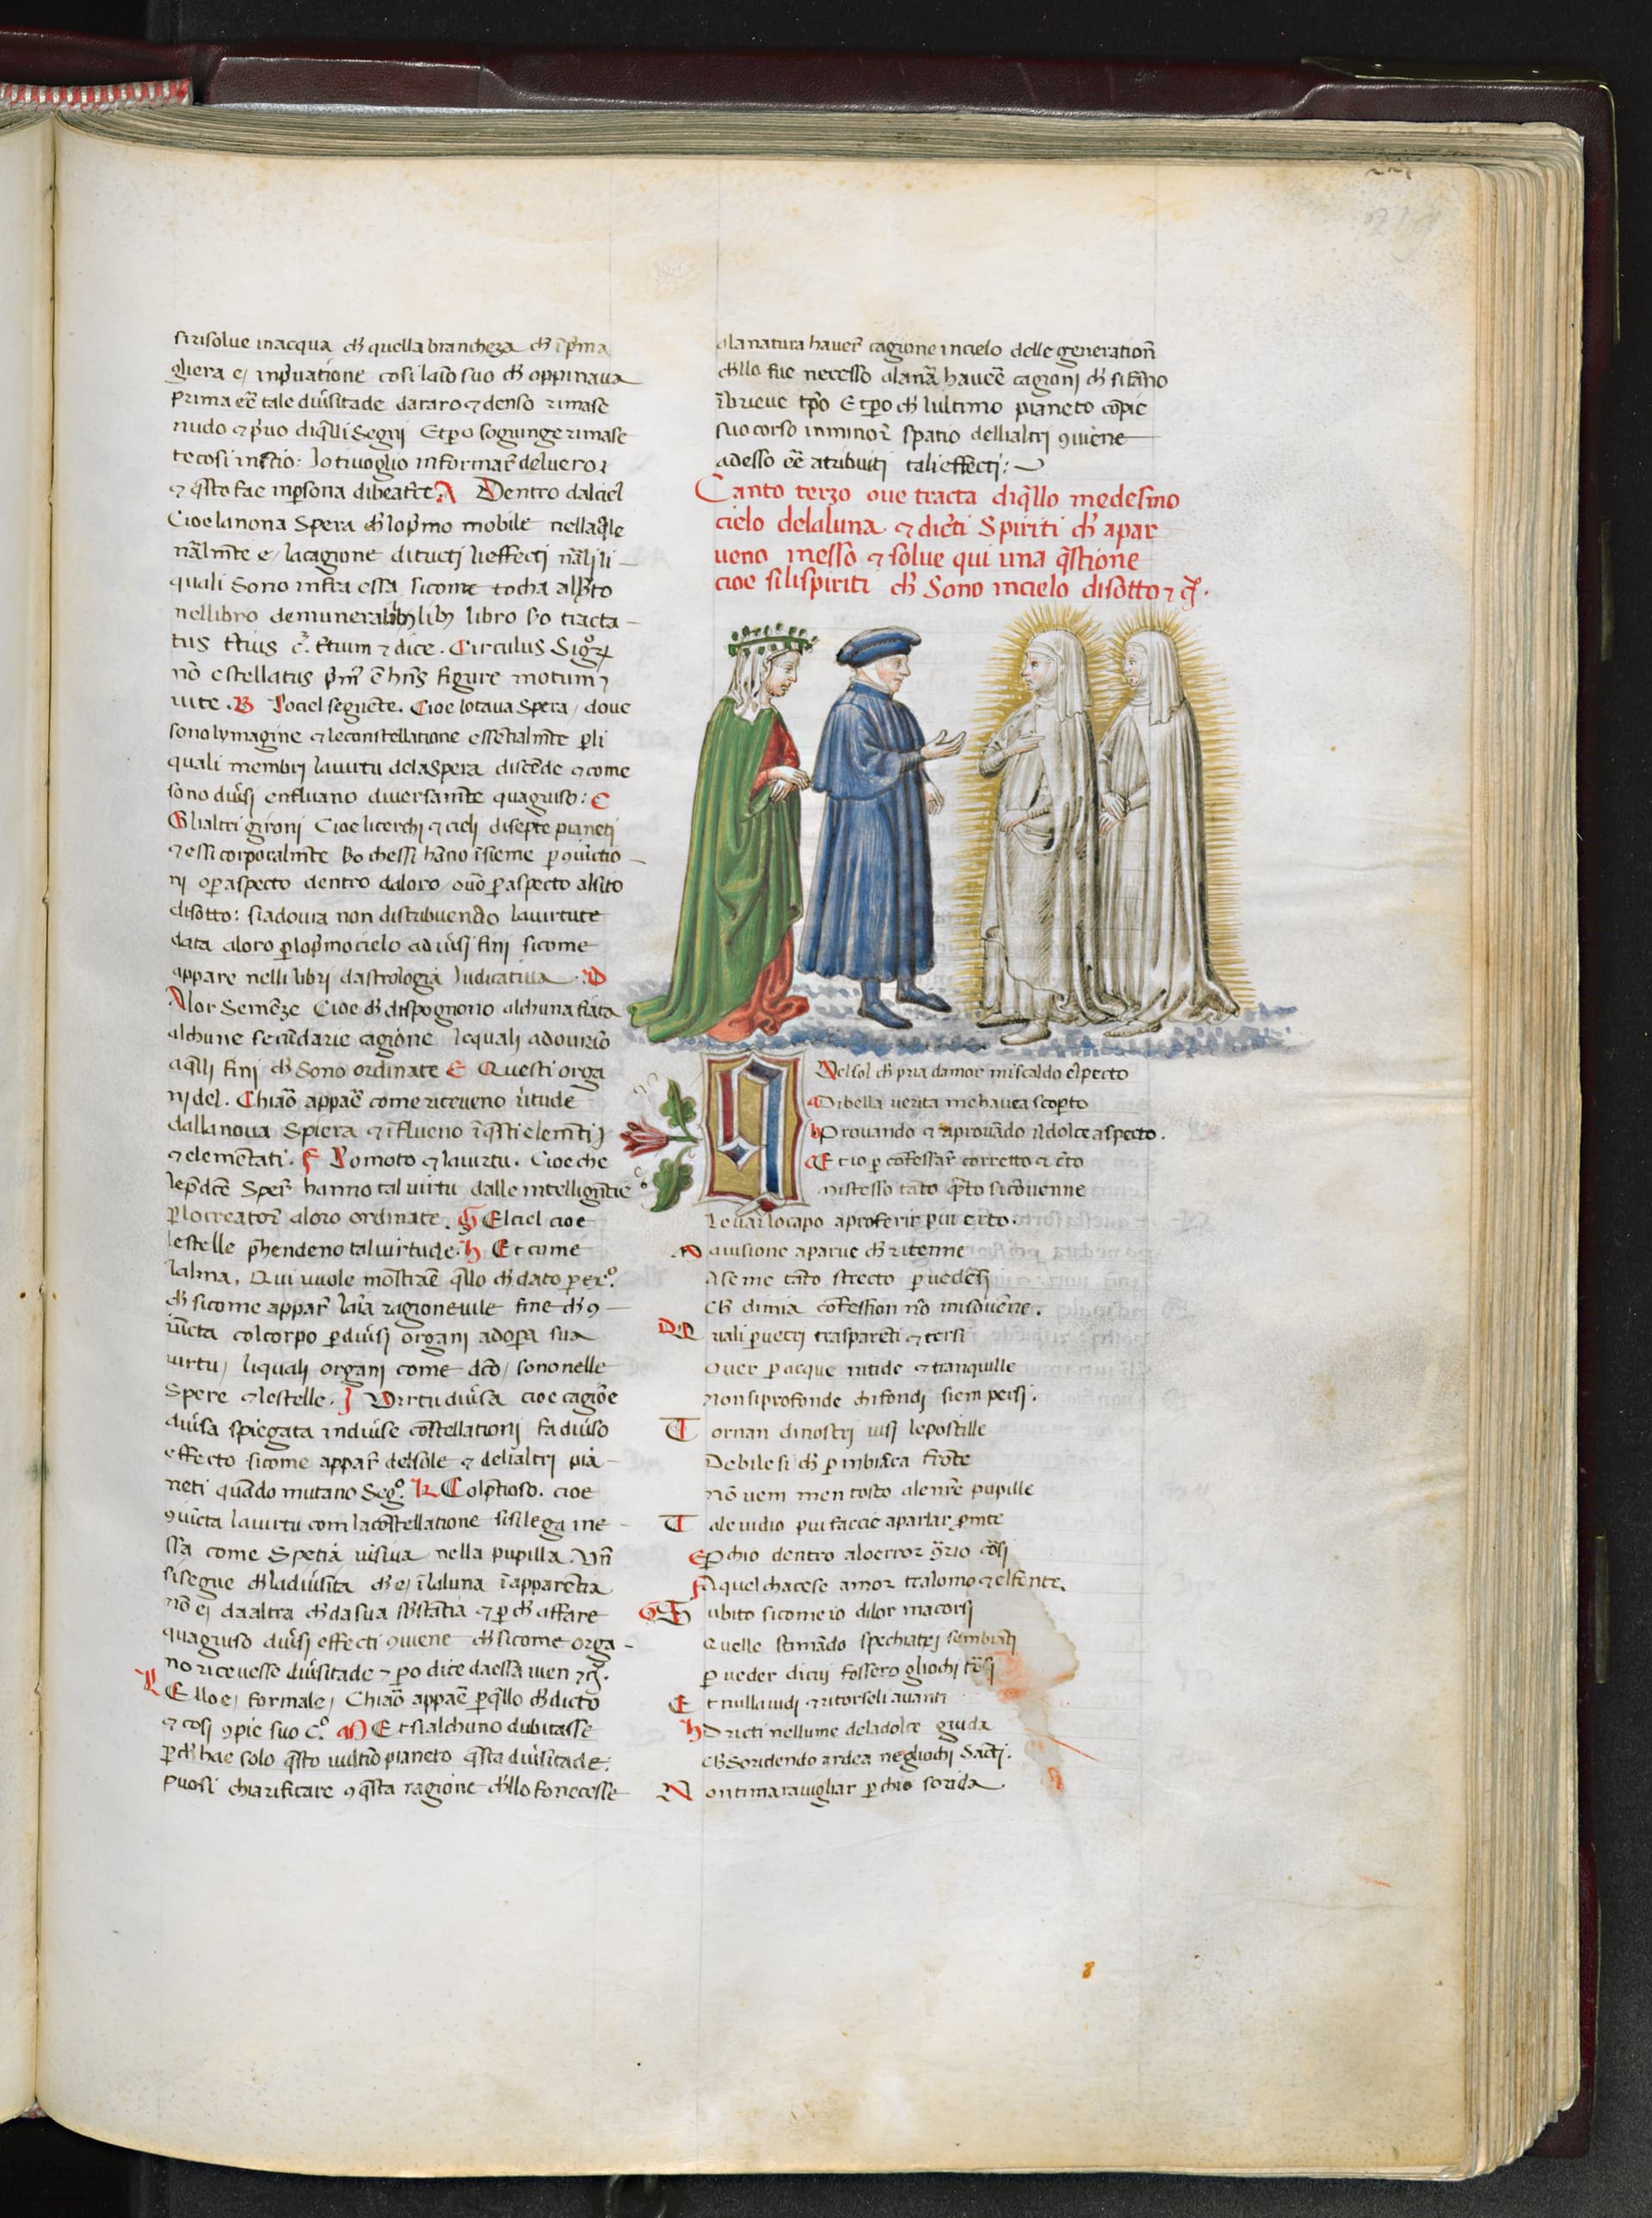 si risolue in acqua ch quella biancheza ch ī pͥma
ghiera e / in pͥuatione cosi laīo suo ch oppinaua
prima eē tale diūsitade da raro ⁊ denso rimase
nudo ⁊ pͥuo di q̄lli Segni Et pͦ sogiunge rimase
te cosi Jo ti uoglio informar̄ del uero ⁊
⁊ q̄sto fae in psona di beat͛ce A Dentro dal ciel
Cioe la nona Spera ch lo pͥmo mobile nella q̄le
nālmēte e / la cagione di tucti li effecti nāli li
quali Sono infra essa sicome tocha alb̄to
nel libro libro
tus dice . Circulus
nō estellatus figure motum
uite . B Lo ciel seguēte . Cioe lotaua Spera / doue
sono lymagine ⁊ le constellatione essētialmēte p li
quali membri la uirtu dela Spera discēde ⁊ come
sono diūsi enfluano diuersamēte quagiuso : C
Gli altri gironi Cioe li cerchi ⁊ cieli di septe pianeti
⁊ essi corporalmēte chessi hāno īsieme p 9iūctio
ni o p aspecto dentro da loro ouo p aspecto al sito
disotto : si adoura non distribuendo la uirtute
data aloro p lo pͥmo cielo ad iūsi fini sicome
appare nelli libri dastrologia Judicatiua . D
A lor Semēze Cioe ch dispognono alchuna fiata
alchune secūdarie cagione le quali adouriō
a q̄lli fini ch Sono ordinate E Questi orga
ni del . Chiaō appaē come riceueno ūtude
dalla noua Spiera ⁊ īflueno ī q̄sti elemēti
⁊ elemētati . F Lo moto ⁊ la uirtu . Cioe che
le p̄dcē Sper̄ hanno tal uirtu dalle intelligētie
p lo creator̄ aloro ordinate . G El ciel cioe
le stelle p̄hendeno tal uirtude . h Et come
lalma . Qui uuole mōstraē q̄llo ch dato p
ch sicome appar̄ laīa ragioneuile fine ch 9
iūcta col corpo p diūsi organi adopa sua
uirtu / li quali organi come dcō / sono nelle
Spere ⁊ le stelle . J Virtu diūsa cioe cagiōe
diūsa spiegata in diūse cōstellationi fa diūso
effecto sicome appar̄ del sole ⁊ deli altri pia
neti quādo mutano Segͦ . K Col p̄tioso . cioe
9iūcta la uirtu com la cōstellatione si si lega in e
ssa come Spetia uisiua nella pupilla . Vn̄
si segue ch la diūsita ch e / ī la luna ī apparētia
nō e / da altra ch da sua sb̄stātia ⁊ p ch affare
quagiuso diūsi effecti 9uiene ch sicome orga
no riceuesse diūsitade ⁊ pͦ dice da essa uien ⁊c̄ .
L Ello e / formale / Chiaō appaē p q̄llo ch dicto
⁊ cosi 9pie suo c.ͦ M Et si alchuno dubitasse
p ch hae solo q̄sto ultīo pianeto q̄sta diūsitade :
Puosi chiarificare 9 q̄sta ragione ch llo fo necesse
ala natura hauer̄ cagione in cielo delle generation̄
ch llo fue necesso ala nāā haueē cagioni ch si fāno
ī brieue tp̄o Et pͦ ch lultimo pianeto cōpie
suo corso in minor̄ spatio delli altri 9uiene
adesso eē atribuiti tali effecti :
Canto terzo oue tracta di q̄llo medesmo
cielo dela luna ⁊ di c̄ti Spiriti ch apar
ueno in esso ⁊ solue qui una q̄stione
cioe si li spiriti ch Sono in cielo disotto ⁊ c̄ .
Q Vel sol ch pͥa damor mi scaldo el pecto
a Di bella uerita me hauea scopto
b Prouando ⁊ aprouādo il dolce aspecto .
c Et io p cōfessar̄ corretto ⁊ c̄to
mi stesso tāto q̄to si cōuenne
Leuai lo capo a proferir piu erto .
A a uisione aparue ch ritenne
A se me tāto strecto p uedersi
Ch di mia cōfession nō mi souēne .
D Q uali p uetri trasparēti ⁊ tersi
Ouer p acque nitide ⁊ tranquille
Non si profonde ch i fondi sien persi .
T ornan di nostri uisi le postille
Debile si ch p in biāca frōte
Nō uem men tosto ale nr̄e pupille
T ale uidio piu faccie a parlar pmte
E P chio dentro alo error 9t̄rio cōsi
F A quel chacese amor tra lomo ⁊ el fonte .
G S ubito sicome io di lor macorsi
Quelle stimādo spechiati sembiāti
p ueder di cui fossero gliochi tōsi
E t nulla uidi ⁊ ritorseli auanti
h Dricti nel lume dela dolce guida
Ch Soridendo ardea ne gliochi Sācti .
N on ti marauigliar p chio sorida